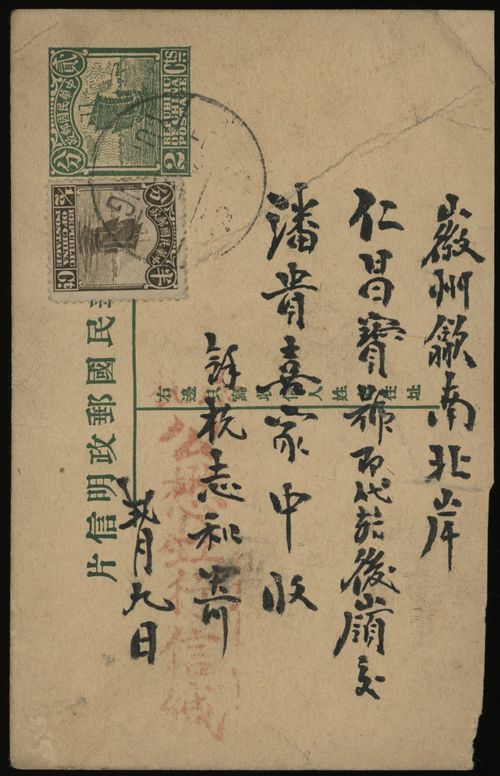 徽州歙南北岸
仁昌寶號即代於後山嶺交
潘貴嘉家中收
餘杭志和寄
月九日
右邊只寫收信人姓名住址
民國郵政明信片
中華民國郵政
貳分
REPUBLIC
OF CHINA
POSTAGE
2 Cts
半分
REPUBLIC
OF CHINA
POSTAGE
½ Ct.